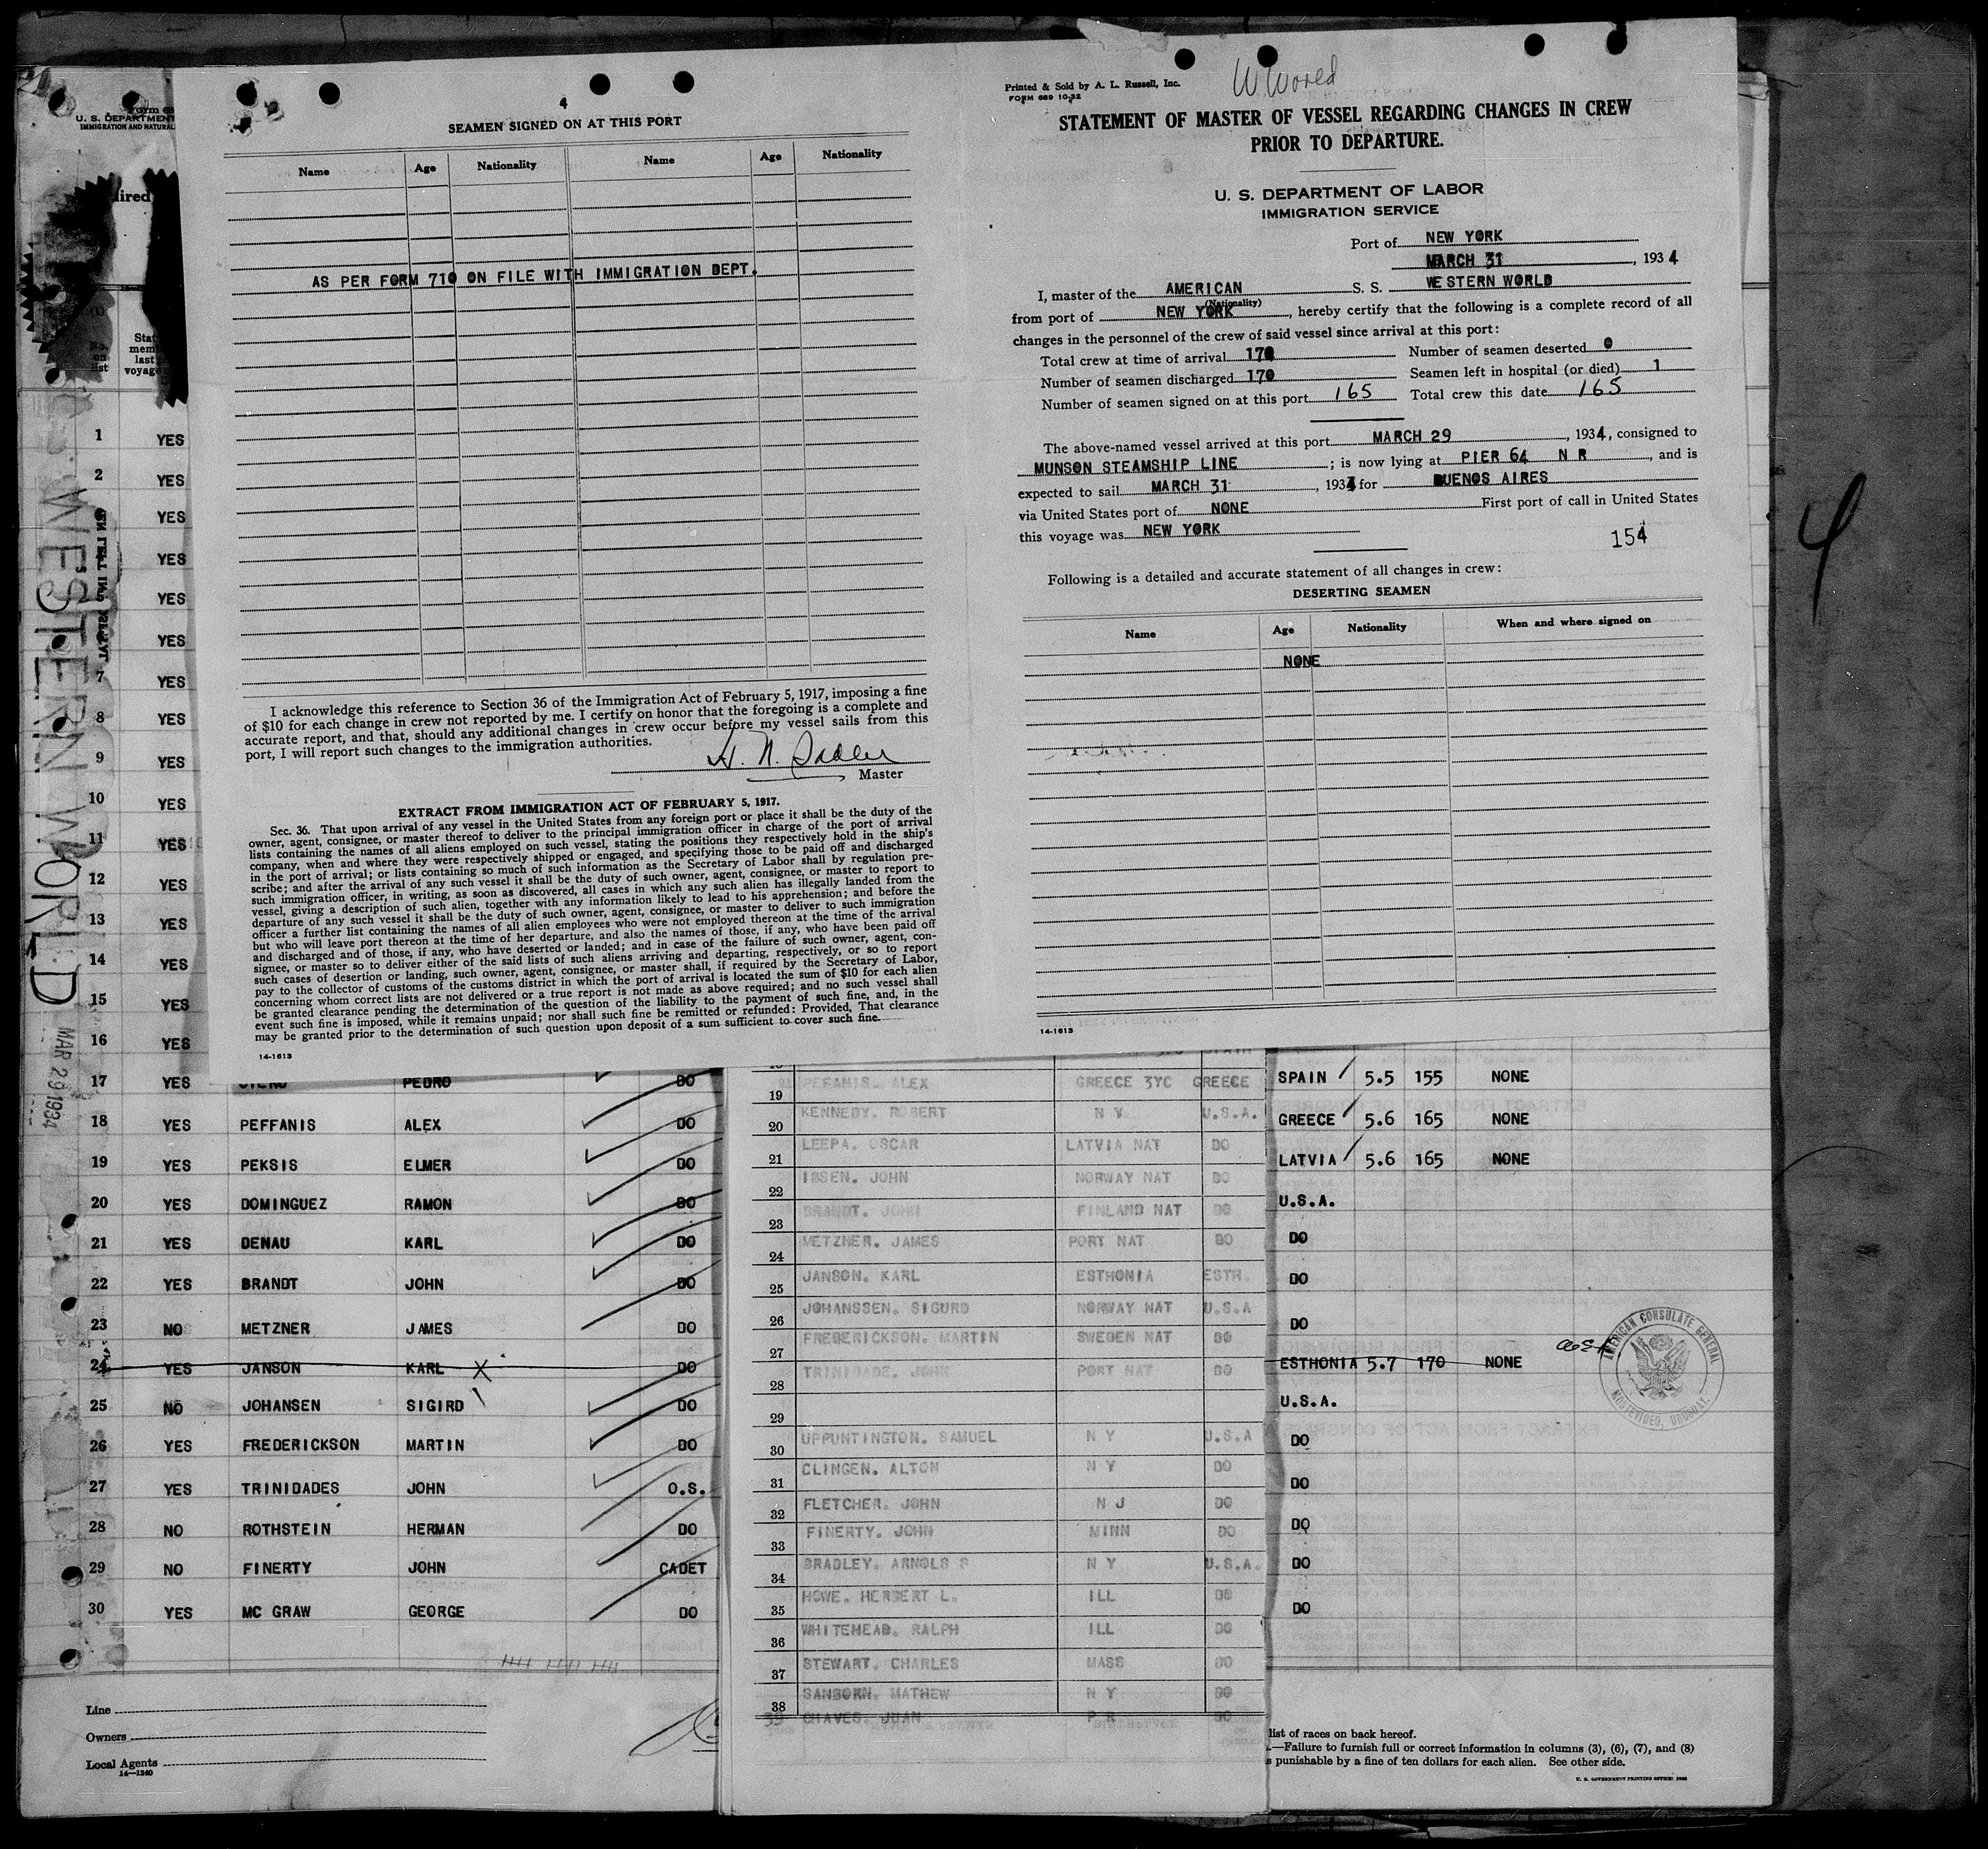 Form 68
U. S. DEPARTMENT
IMMIGRATION AND NATURAL
ired
(1)
No. on list
Stat
mem
last
voyage
WESTERN WORLD
MAR 29 1934
4
SEAMEN SIGNED ON AT THIS PORT
Name Age Nationality Name Age Nationality
AS PER FORM 710 ON FILE WITH IMMIGRATION DEPT.
I acknowledge this reference to Section 36 of the Immigration Act of February 5, 1917, imposing a fine
of $10 for each change in crew not reported by me. I certify on honor that the foregoing is a complete and
accurate report, and that, should any additional changes in crew occur before my vessel sails from this
port, I will report such changes to the immigration authorities.
Master
EXTRACT FROM IMMIGRATION ACT OF FEBRUARY 5, 1917.
Sec. 36. That upon arrival of any vessel in the United States from any foreign port or place it shall be the duty of the
owner, agent, consignee, or master thereof to deliver to the principal immigration officer in charge of the port of arrival
lists containing the names of all aliens employed on such vessel, stating the positions they respectively hold in the ship's
company, when and where they were respectively shipped or engaged, and specifying those to be paid off and discharged
in the port of arrival; or lists containing so much of such information as the Secretary of Labor shall by regulation pre-
scribe; and after the arrival of any such vessel it shall be the duty of such owner, agent, consignee, or master to report to
such immigration officer, in writing, as soon as discovered, all cases in which any such alien has illegally landed from the
vessel, giving a description of such alien, together with any information likely to lead to his apprehension; and before the
departure of any such vessel it shall be the duty of such owner, agent, consignee, or master to deliver to such immigration
officer a further list containing the names of all alien employees who were not employed thereon at the time of the arrival
but who will leave port thereon at the time of her departure, and also the names of those, if any, who have been paid off
and discharged and of those, if any, who have deserted or landed; and in case of the failure of such owner, agent, con-
signee, or master so to deliver either of the said lists of such aliens arriving and departing, respectively, or so to report
such cases of desertion or landing, such owner, agent, consignee, or master shall, if required by the Secretary of Labor,
pay to the collector of customs of the customs district in which the port of arrival is located the sum of $10 for each alien
concerning whom correct lists are not delivered or a true report is not made as above required; and no such vessel shall
be granted clearance pending the determination of the question of the liability to the payment of such fine, and, in the
event such fine is imposed, while it remains unpaid; nor shall such fine be remitted or refunded: Provided, That clearance
may be granted prior to the determination of such question upon deposit of a sum sufficient to cover such fine.
14-1613
Printed & Sold by A. L. Russell, Inc.
FORM 689 10-32
W. World
STATEMENT OF MASTER OF VESSEL REGARDING CHANGES IN CREW
PRIOR TO DEPARTURE.
U. S. DEPARTMENT OF LABOR
IMMIGRATION SERVICE
Port of NEW YORK
MARCH 31, 1934
I, master of the AMERICAN S. S. WESTERN WORLD
(Nationality)
from port of NEW YORK, hereby certify that the following is a complete record of all
changes in the personnel of the crew of said vessel since arrival at this port:
Total crew at time of arrival 170 Number of seamen deserted 0
Number of seamen discharged 170 Seamen left in hospital (or died) 1
Number of seamen signed on at this port 165 Total crew this date 165
The above-named vessel arrived at this port MARCH 29, 1934, consigned to
MUNSON STEAMSHIP LINE; is now lying at PIER 64 N R, and is
expected to sail MARCH 31, 1934 for BUENOS AIRES
via United States port of NONE First port of call in United States
this voyage was NEW YORK
154
Following is a detailed and accurate statement of all changes in crew:
DESERTING SEAMEN
Name Age Nationality When and where signed on
NONE
14-1613
4
1 YES
2 YES
YES
YES
YES
YES
7 YES
8 YES
9 YES
10 YES
11 YES
12 YES
13 YES
14 YES
15 YES
16 YES
17 YES PEDRO DO
18 YES PEFFANIS ALEX DO
19 YES PEKSIS ELMER DO
20 YES DOMINGUEZ RAMON DO
21 YES DENAU KARL DO
22 YES BRANDT JOHN DO
23 NO METZNER JAMES DO
24 YES JANSON KARL X DO
25 NO JOHANSEN SIGIRD DO
26 YES FREDERICKSON MARTIN DO
27 YES TRINIDADES JOHN O.S.
28 NO ROTHSTEIN HERMAN DO
29 NO FINERTY JOHN CADET
30 YES MC GRAW GEORGE DO
Line
Owners
Local Agents
14-1240
PEFANIS. ALEX GREECE 3YC GREECE
19
KENNEDY. ROBERT N Y U.S.A.
20
LEEPA. OSCAR LATVIA NAT DO
21
IBSEN. JOHN NORWAY NAT DO
22
BRANDT. JOHN FINLAND NAT DO
23
METZNER. JAMES PORT NAT DO
24
JANSON. KARL ESTHONIA ESTH.
25
JOHANSSEN. SIGURD NORWAY NAT U.S.A
26
FREDERICKSON. MARTIN SWEDEN NAT DO
27
TRINIDADE. JOHN PORT NAT DO
28
29
UPPUNTINGTON. SAMUEL N Y U.S.A
30
CLINGEN. ALTON N Y DO
31
FLETCHER. JOHN N J DO
32
FINERTY. JOHN MINN DO
33
BRADLEY. ARNOLS S N Y U.S.A.
34
HOWE. HERBERT L. ILL DO
35
WHITEHEAD. RALPH ILL DO
36
STEWART. CHARLES MASS DO
37
SANBORN. MATHEW N Y DO
38
39 CHAVES. JUAN P R DO
SPAIN 5.5 155 NONE
GREECE 5.6 165 NONE
LATVIA 5.6 165 NONE
U.S.A.
DO
DO
DO
ESTHONIA 5.7 170 NONE
U.S.A.
DO
DO
DO
DO
DO
AMERICAN CONSULATE GENERAL
MONTEVIDEO, URUGUAY.
list of races on back hereof.
.—Failure to furnish full or correct information in columns (3), (6), (7), and (8)
s punishable by a fine of ten dollars for each alien. See other side.
U. S. GOVERNMENT PRINTING OFFICE: